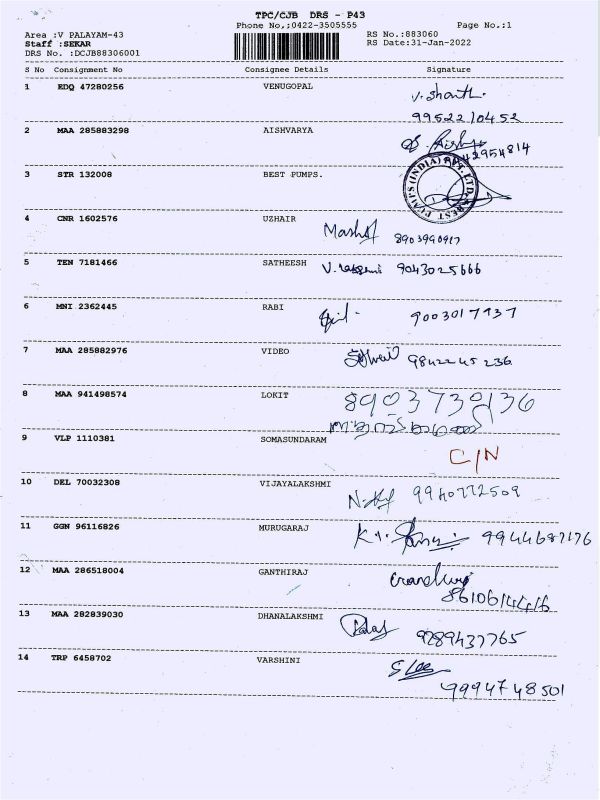 TPC/CJB DRS - P43
Phone No,;0422-3505555 Page No.;1
Area :V PALAYAM-43 RS No.:883060
Staff :SEKAR RS Date:31-Jan-2022
DRS No. :DCJB88306001
S No Consignment No Consignee Details Signature
1 EDQ 47280256 VENUGOPAL V. Shanth.
9952210452
2 MAA 285883298 AISHVARYA
42954814
3 STR 132008 BEST PUMPS. BEST PUMPS (INDIA) PVT. LTD.
4 CNR 1602576 UZHAIR 8903990917
5 TEN 7181466 SATHEESH 9043025666
6 MNI 2362445 RABI 9003017937
7 MAA 285882976 VIDEO 9842245236
8 MAA 941498574 LOKIT 8903730136
9 VLP 1110381 SOMASUNDARAM
C/N
10 DEL 70032308 VIJAYALAKSHMI 9940772509
11 GGN 96116826 MURUGARAJ 9944687176
12 MAA 286518004 GANTHIRAJ
8610614416
13 MAA 282839030 DHANALAKSHMI
9789437765
14 TRP 6458702 VARSHINI
9994748501